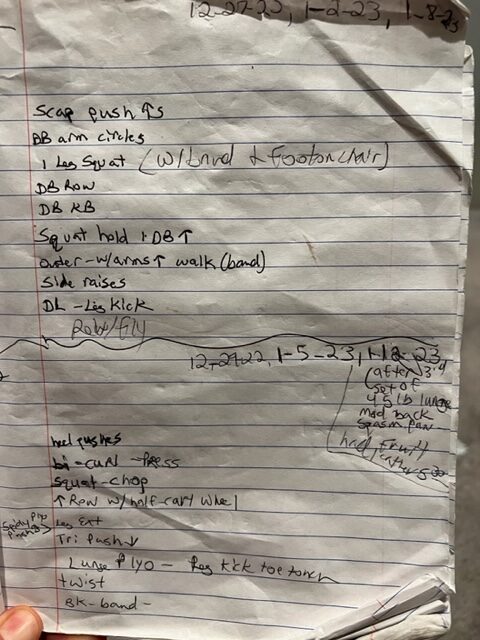 12-27-22, 1-2-23, 1-8-23
Scap push ↑s
DB arm circles
1 Leg Squat (w/ & Foot on chair)
DB Row
DB KB
Squat hold 1 DB ↑
Outer-w/arms ↑ walk (band)
Side raises
DL - Leg Kick
/Fly
12-29-22, 1-5-23, 1-12-23
(after 3rd
set of
45 lb lunge
mod back
spasm
had
heel pushes
bi-curl -Press
squat-chop
↑ Row w/half-cart wheel
Leg Ext
Tri Push ↓
Lunge Plyo - leg kick toe touch
twist
BK-band-